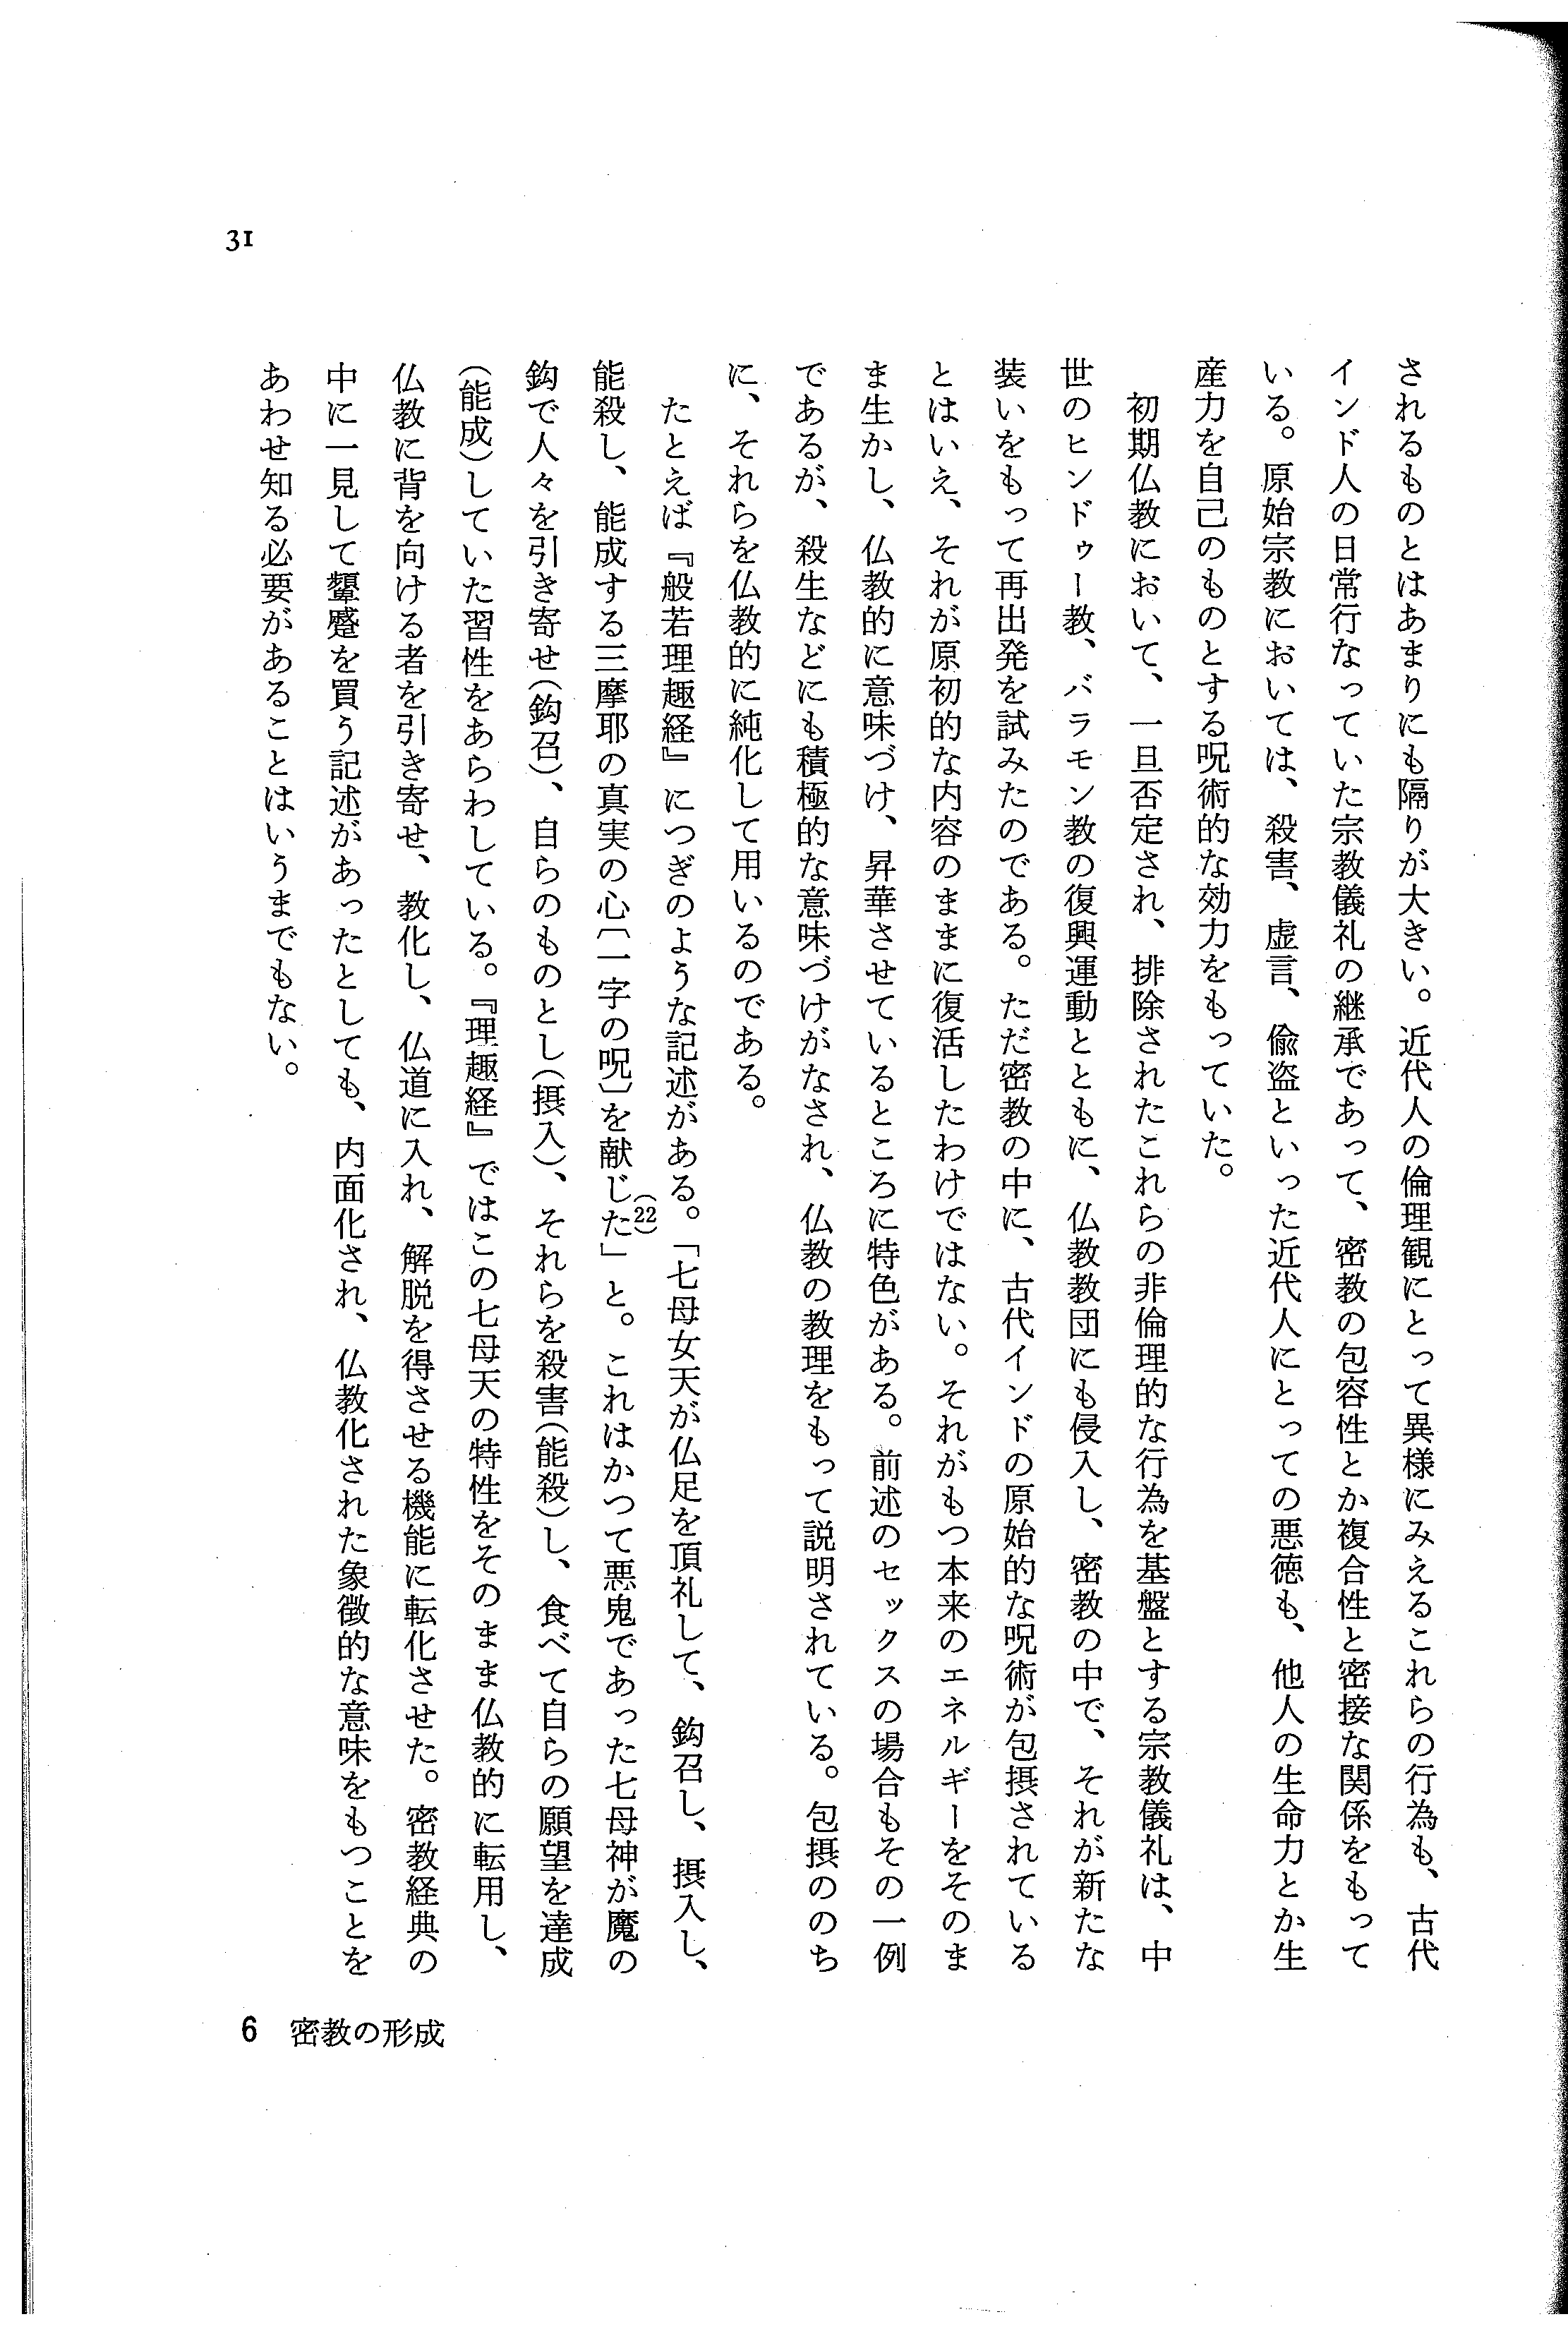 されるものとはあまりにも隔りが大きい。近代人の倫理観にとって異様にみえるこれらの行為も、古代
インド人の日常行なっていた宗教儀礼の継承であって、密教の包容性とか複合性と密接な関係をもって
いる。原始宗教においては、殺害、虚言、偸盗といった近代人にとっての悪徳も、他人の生命力とか生
産力を自己のものとする呪術的な効力をもっていた。
初期仏教において、一旦否定され、排除されたこれらの非倫理的な行為を基盤とする宗教儀礼は、中
世のヒンドゥー教、バラモン教の復興運動とともに、仏教教団にも侵入し、密教の中で、それが新たな
装いをもって再出発を試みたのである。ただ密教の中に、古代インドの原始的な呪術が包摂されている
とはいえ、それが原初的な内容のままに復活したわけではない。それがもつ本来のエネルギーをそのま
ま生かし、仏教的に意味づけ、昇華させているところに特色がある。前述のセックスの場合もその一例
であるが、殺生などにも積極的な意味づけがなされ、仏教の教理をもって説明されている。包摂ののち
に、それらを仏教的に純化して用いるのである。
たとえば『般若理趣経』につぎのような記述がある。「七母女天が仏足を頂礼して、鈎召し、摂入し、
能殺し、能成する三摩耶の真実の心〔一字の呪〕を献じた」(22)と。これはかつて悪鬼であった七母神が魔の
鈎で人々を引き寄せ(鈎召)、自らのものとし(摂入)、それらを殺害(能殺)し、食べて自らの願望を達成
(能成)していた習性をあらわしている。『理趣経』ではこの七母天の特性をそのまま仏教的に転用し、
仏教に背を向ける者を引き寄せ、教化し、仏道に入れ、解脱を得させる機能に転化させた。密教経典の
中に一見して顰蹙を買う記述があったとしても、内面化され、仏教化された象徴的な意味をもつことを
あわせ知る必要があることはいうまでもない。
31
6 密教の形成